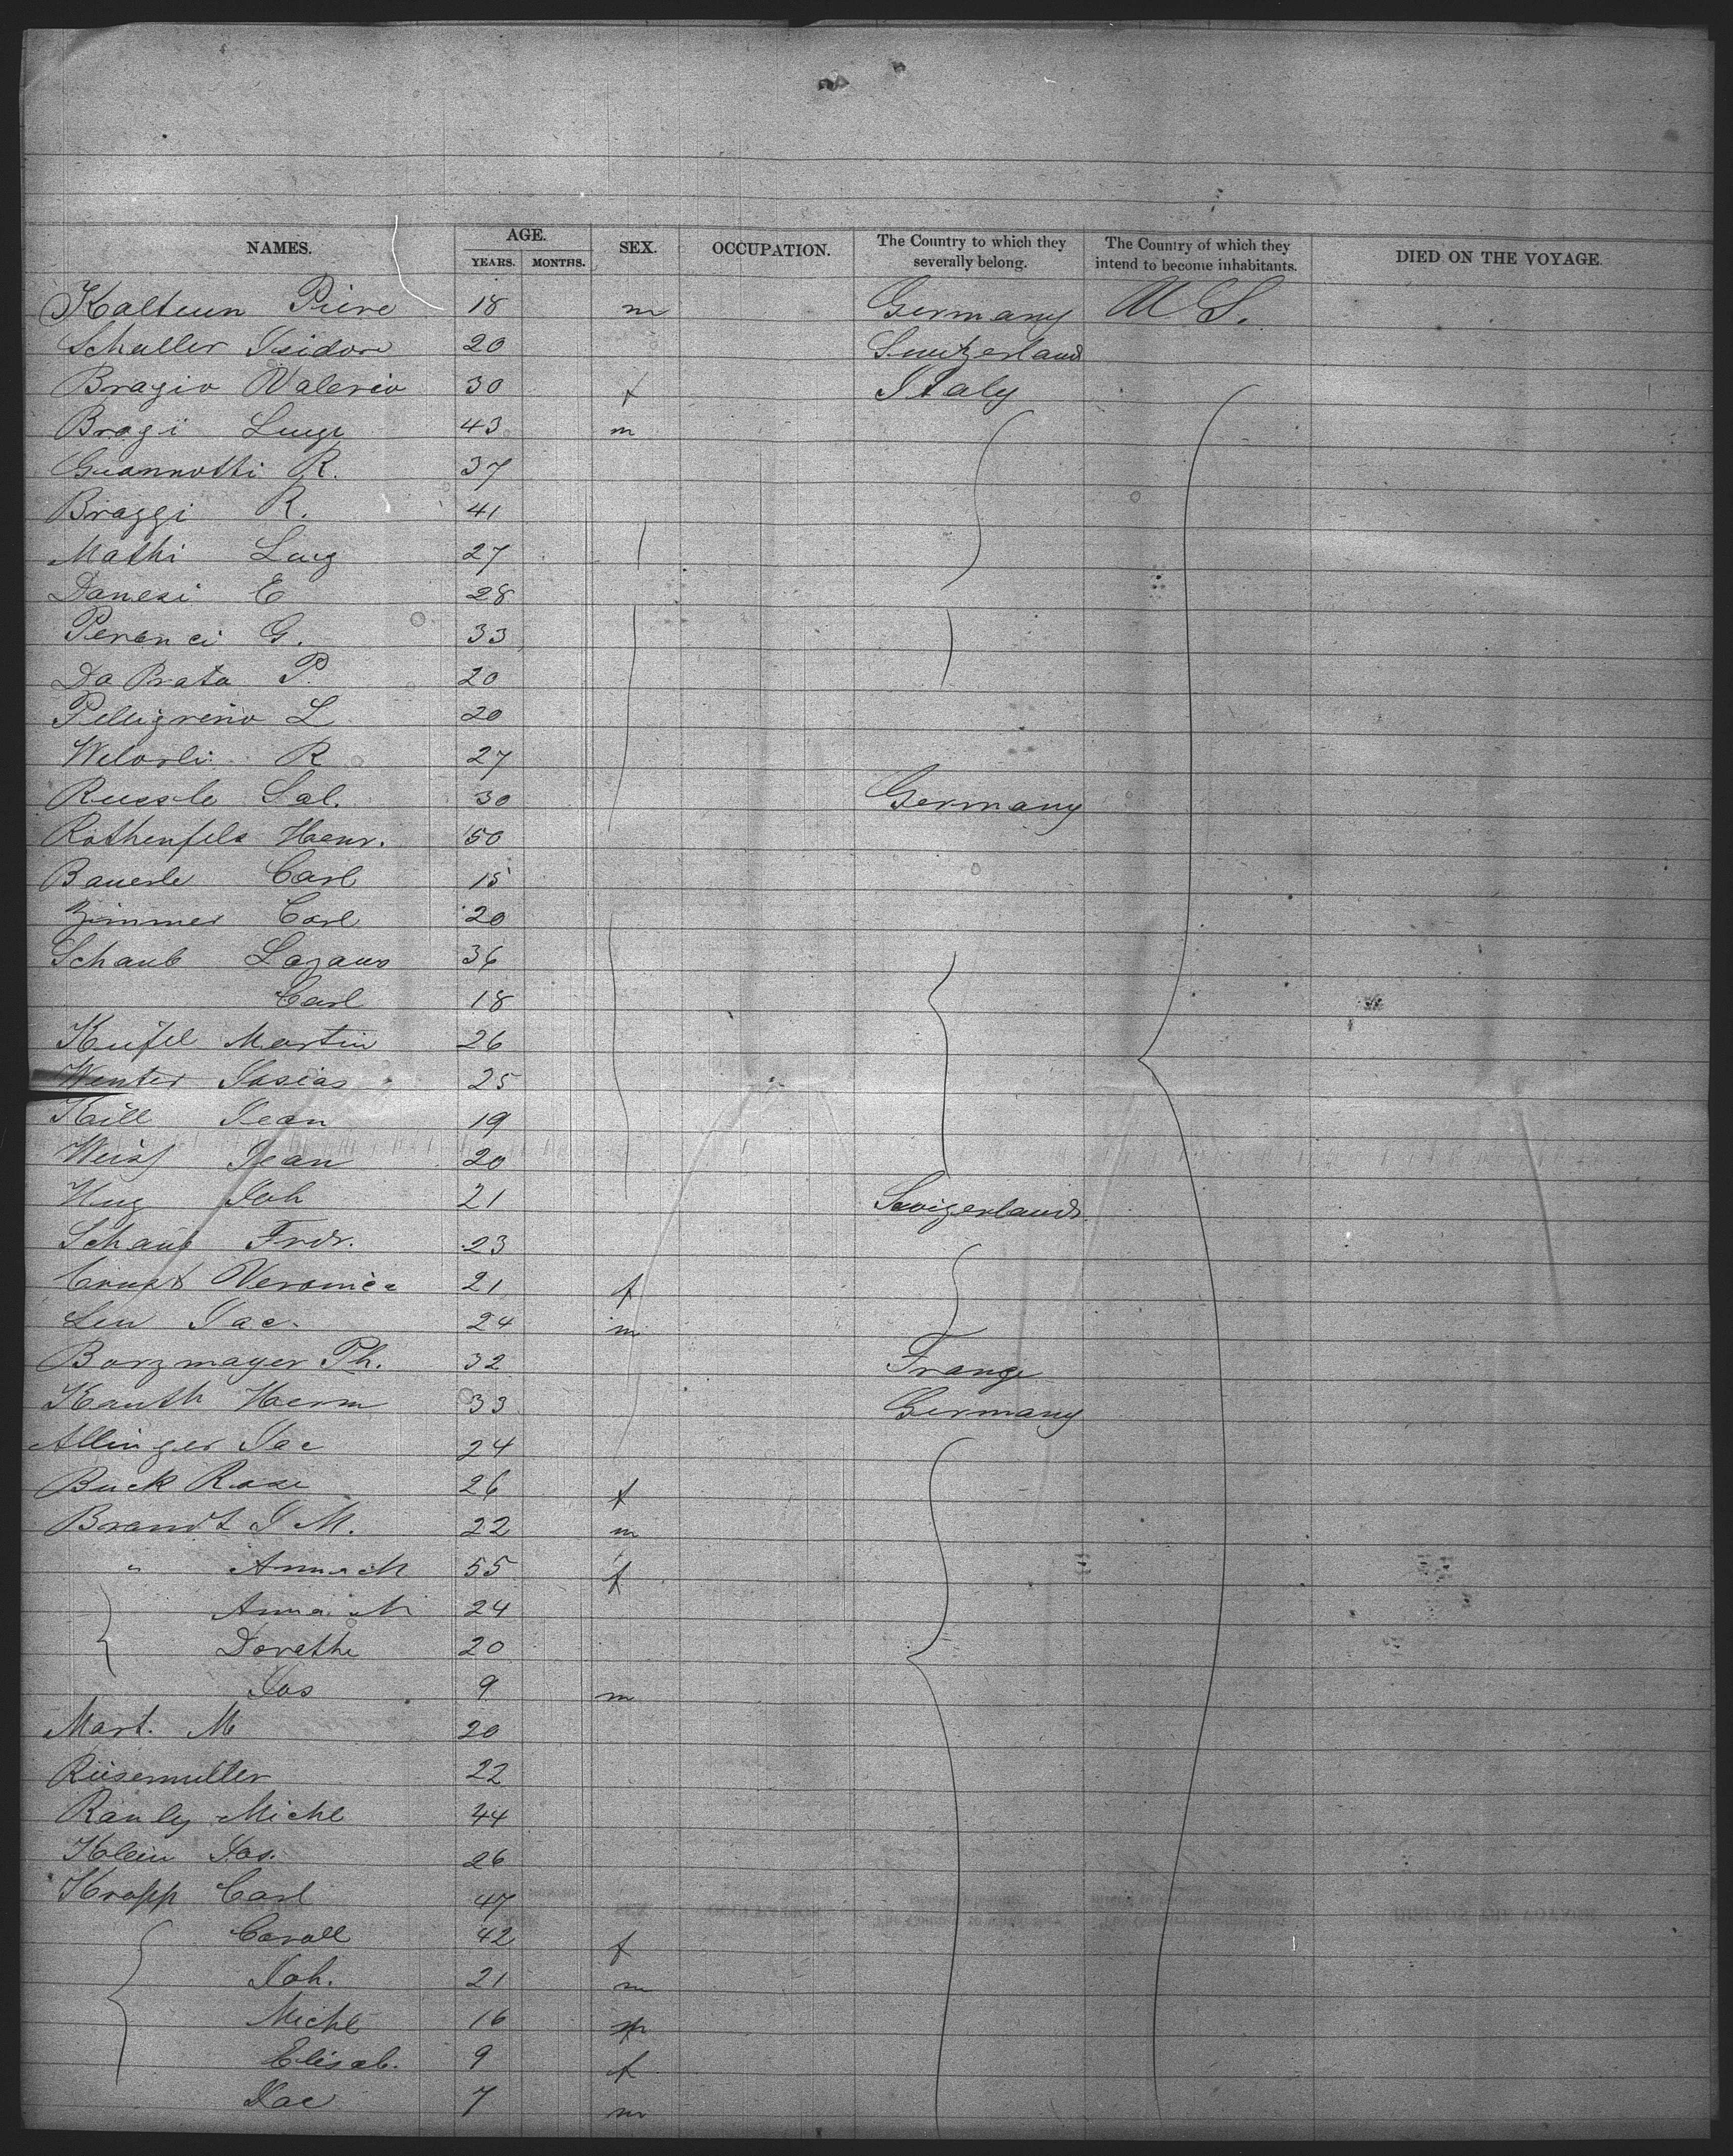 NAMES. AGE. SEX. OCCUPATION. The Country to which they severally belong. The Country of which they intend to become inhabitants. DIED ON THE VOYAGE.
YEARS. MONTHS.
Kalteun Piere 18 m Germany U S.
Schaller Isidore 20 Switzerland
Bragio Valerio 30 f Italy
Bragi Luigi 43 m
Giannotti R. 37
Braggi R. 41
Mathi Luig 27
Danesi E 28
Peranci G. 33
Da Prata P. 20
Pellegrino L 20
R 27
Russle Sal. 30 Germany
Rothenfels Henr. 50
Bauerle Carl 15
Zimmer Carl 20
Schaub Lazarus 36
Carl 18
Keifel Martin 26
Wenter Josias 25
Kill Jean 19
Weiss Jean 20
Hug Joh 21 Swizerland
Schaub Frdr. 23
Veronica 21 f
Leu Jac. 24 m
Borzmayer Ph. 32 France
Kauth Herm 33 Germany
Allinger Jac 24
Buck Rose 26 f
Brandt J M. 22 m
" Anna M 55 f
Anna M 24
Dorethe 20
Jos 9 m
Mart. M 20
Riesenmuller 22
Ranly Michl 44
Klein Jos. 26
Kropp Carl 47
Caroll 42 f
Joh. 21 m
Michl 16 m
Elisab. 9 f
Jac 7 m